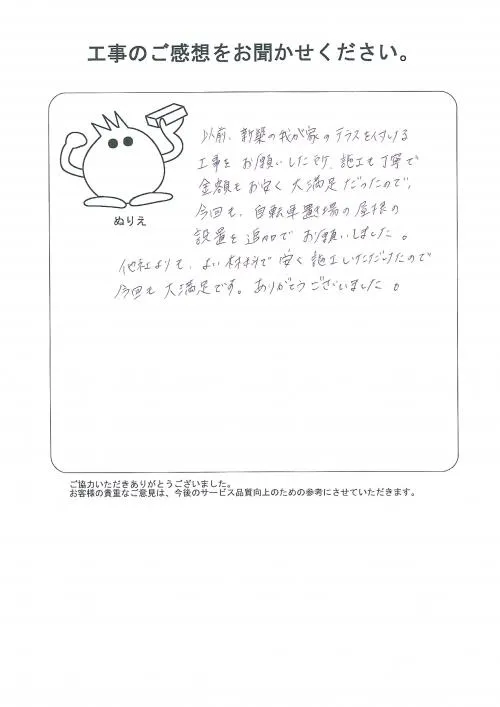 工事のご感想をお聞かせください。
以前、新築の我が家のテラスを付ける
工事をお願いした所、施工も丁寧で
金額もお安く大満足だったので、
今回も、自転車置場の屋根の
設置を追加でお願いしました。
ぬりえ
他社よりも、よい材料で安く施工いただけたので
今回も大満足です。ありがとうございました。
ご協力いただきありがとうございました。
お客様の貴重なご意見は、今後のサービス品質向上のための参考にさせていただきます。